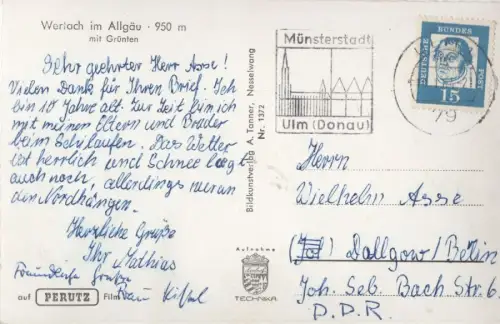 Wertach im Allgäu · 950 m
mit Grünten
Sehr geehrter Herr Asse!
Vielen Dank für Ihren Brief. Ich
bin 10 Jahre alt. Zur Zeit bin ich
mit meinen Eltern und Bruder
beim Schilaufen. Das Wetter
ist herrlich und Schnee liegt
auch noch, allerdings nur an
den Nordhängen.
Herzliche Grüße
Ihr Mathias
Freundliche Grüße
Frau
auf PERUTZ Film
Bildkunstverlag A. Tanner, Nesselwang
Nr. 1372
Aufnahme
TECHNIKA
Münsterstadt
Ulm (Donau)
79
DEUTSCHE
BUNDES
POST
15
Herrn
Wielhelm Asse
Dallgow/Berlin
Joh. Seb. Bach Str. 6
D.D.R.